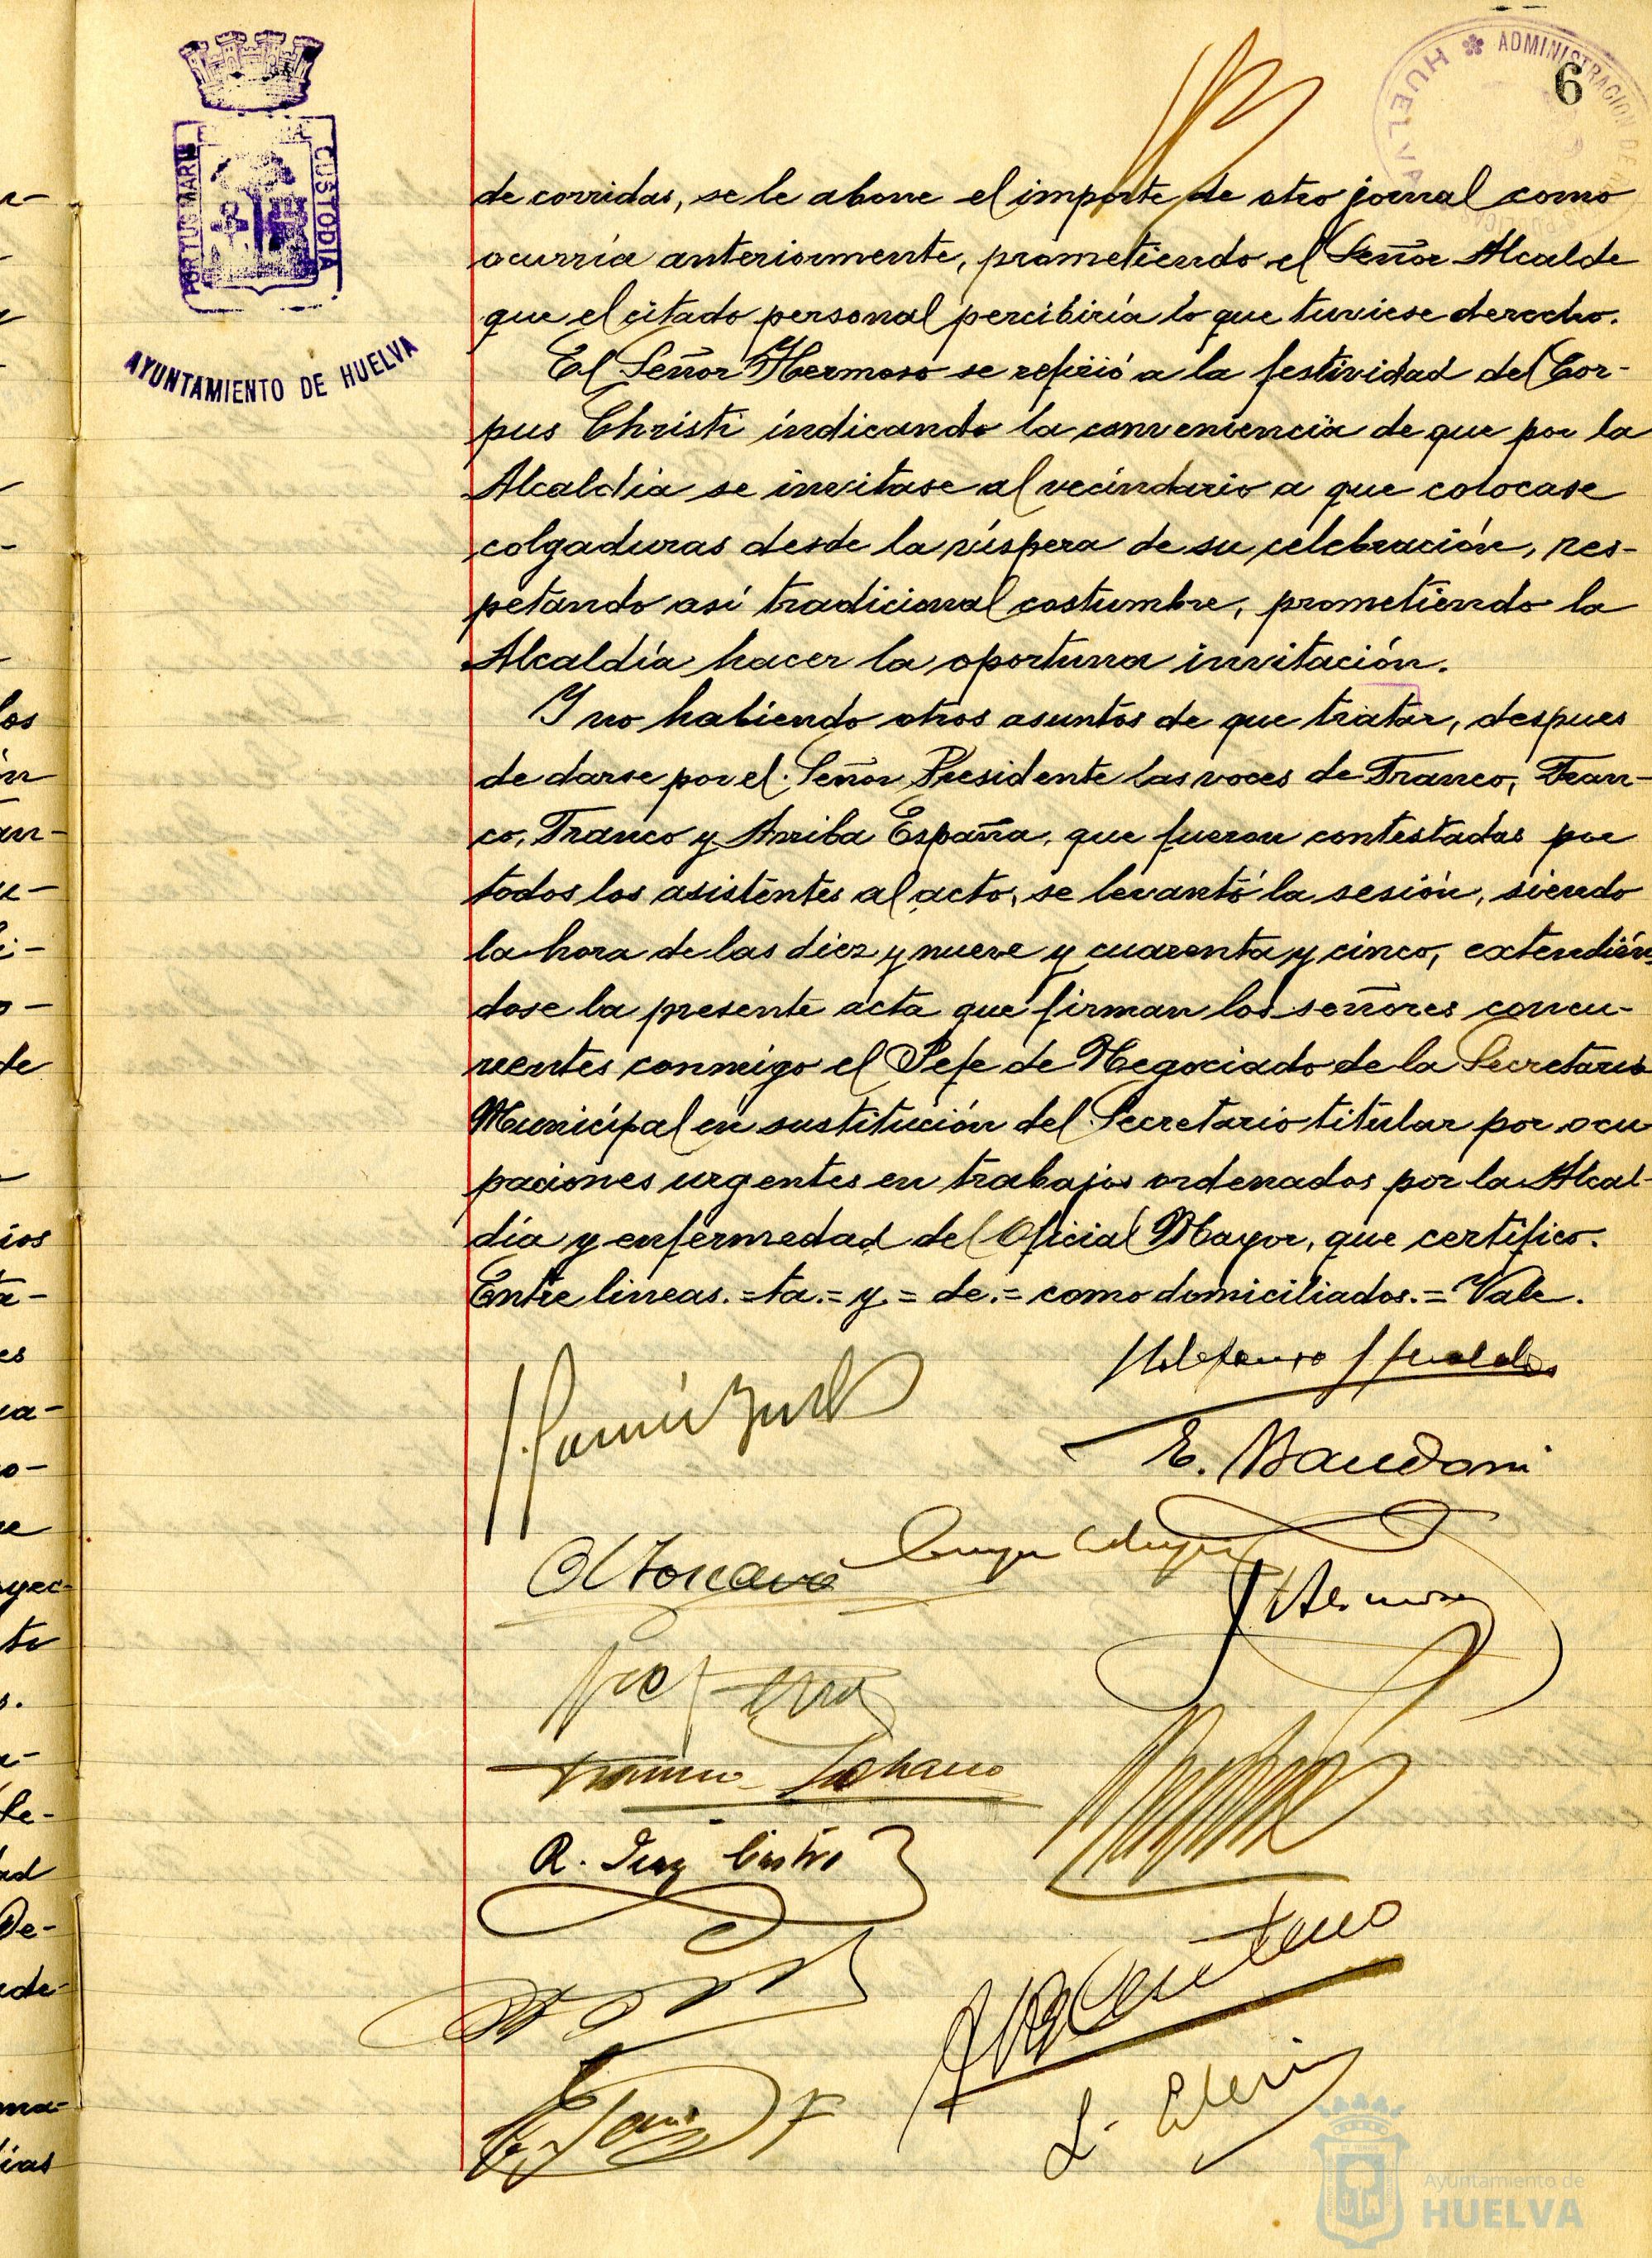 PORTUS MARIS
CUSTODIA
AYUNTAMIENTO DE HUELVA
ADMINISTRACIÓN DE
HUELVA
6
de corridas, se le abone el importe de otro jornal como
ocurría anteriormente, prometiendo el Señor Alcalde
que el citado personal percibiría lo que tuviese derecho.
El Señor Hermoso se refirió a la festividad del Cor-
pus Christi indicando la conveniencia de que por la
Alcaldia se invitase al vecindario a que colocase
colgaduras desde la víspera de su celebración, res-
petando así tradicional costumbre, prometiendo la
Alcaldía hacer la oportuna invitación.
Y no habiendo otros asuntos de que tratar, despues
de darse por el Señor Presidente las voces de Franco, Fran-
co, Franco y Arriba España, que fueron contestadas por
todos los asistentes al acto, se levantó la sesión, siendo
la hora de las diez y nueve y cuarenta y cinco, extendién-
dose la presente acta que firman los señores concu-
rrentes conmigo el Jefe de Negociado de la Secretaria
Municipal en sustitución del Secretario titular por ocu
paciones urgentes en trabajos ordenados por la Alcal-
día y enfermedad del Oficial Mayor, que certifico.
Entre lineas.=ta.=y.=de.=como domiciliados.=Vale.
E. Mandoni
J Hermoso
R. Diaz Castro
Centeno
Ayuntamiento de
HUELVA